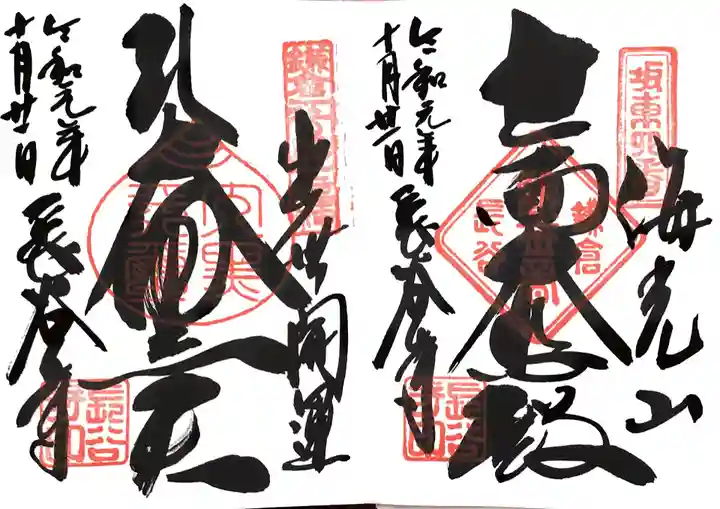 坂東四番
海光山
十一面大悲殿
鎌倉
長谷
令和元年
十月廿一日
長谷寺
長谷
寺印
出世開運
大黒天
令和元年
十月廿一日
長谷寺
長谷
寺印